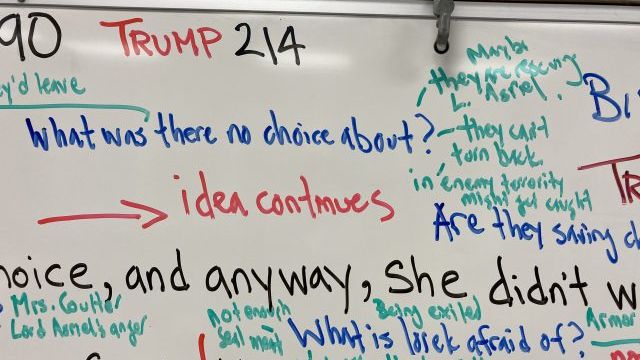 90 TRUMP 214
y'd leave
Maybe
they are rescuing
L. Asriel.
Bi
What was there no choice about?
they can't
torn back.
in enemy terrority
might get caught
idea continues
TR
Are they saving ch
hoice, and anyway, She didn't w
Mrs. Coulter
Lord Asriel's anger
Not enough
seal meat
Being exiled
What is Iorek afraid of?
Armor